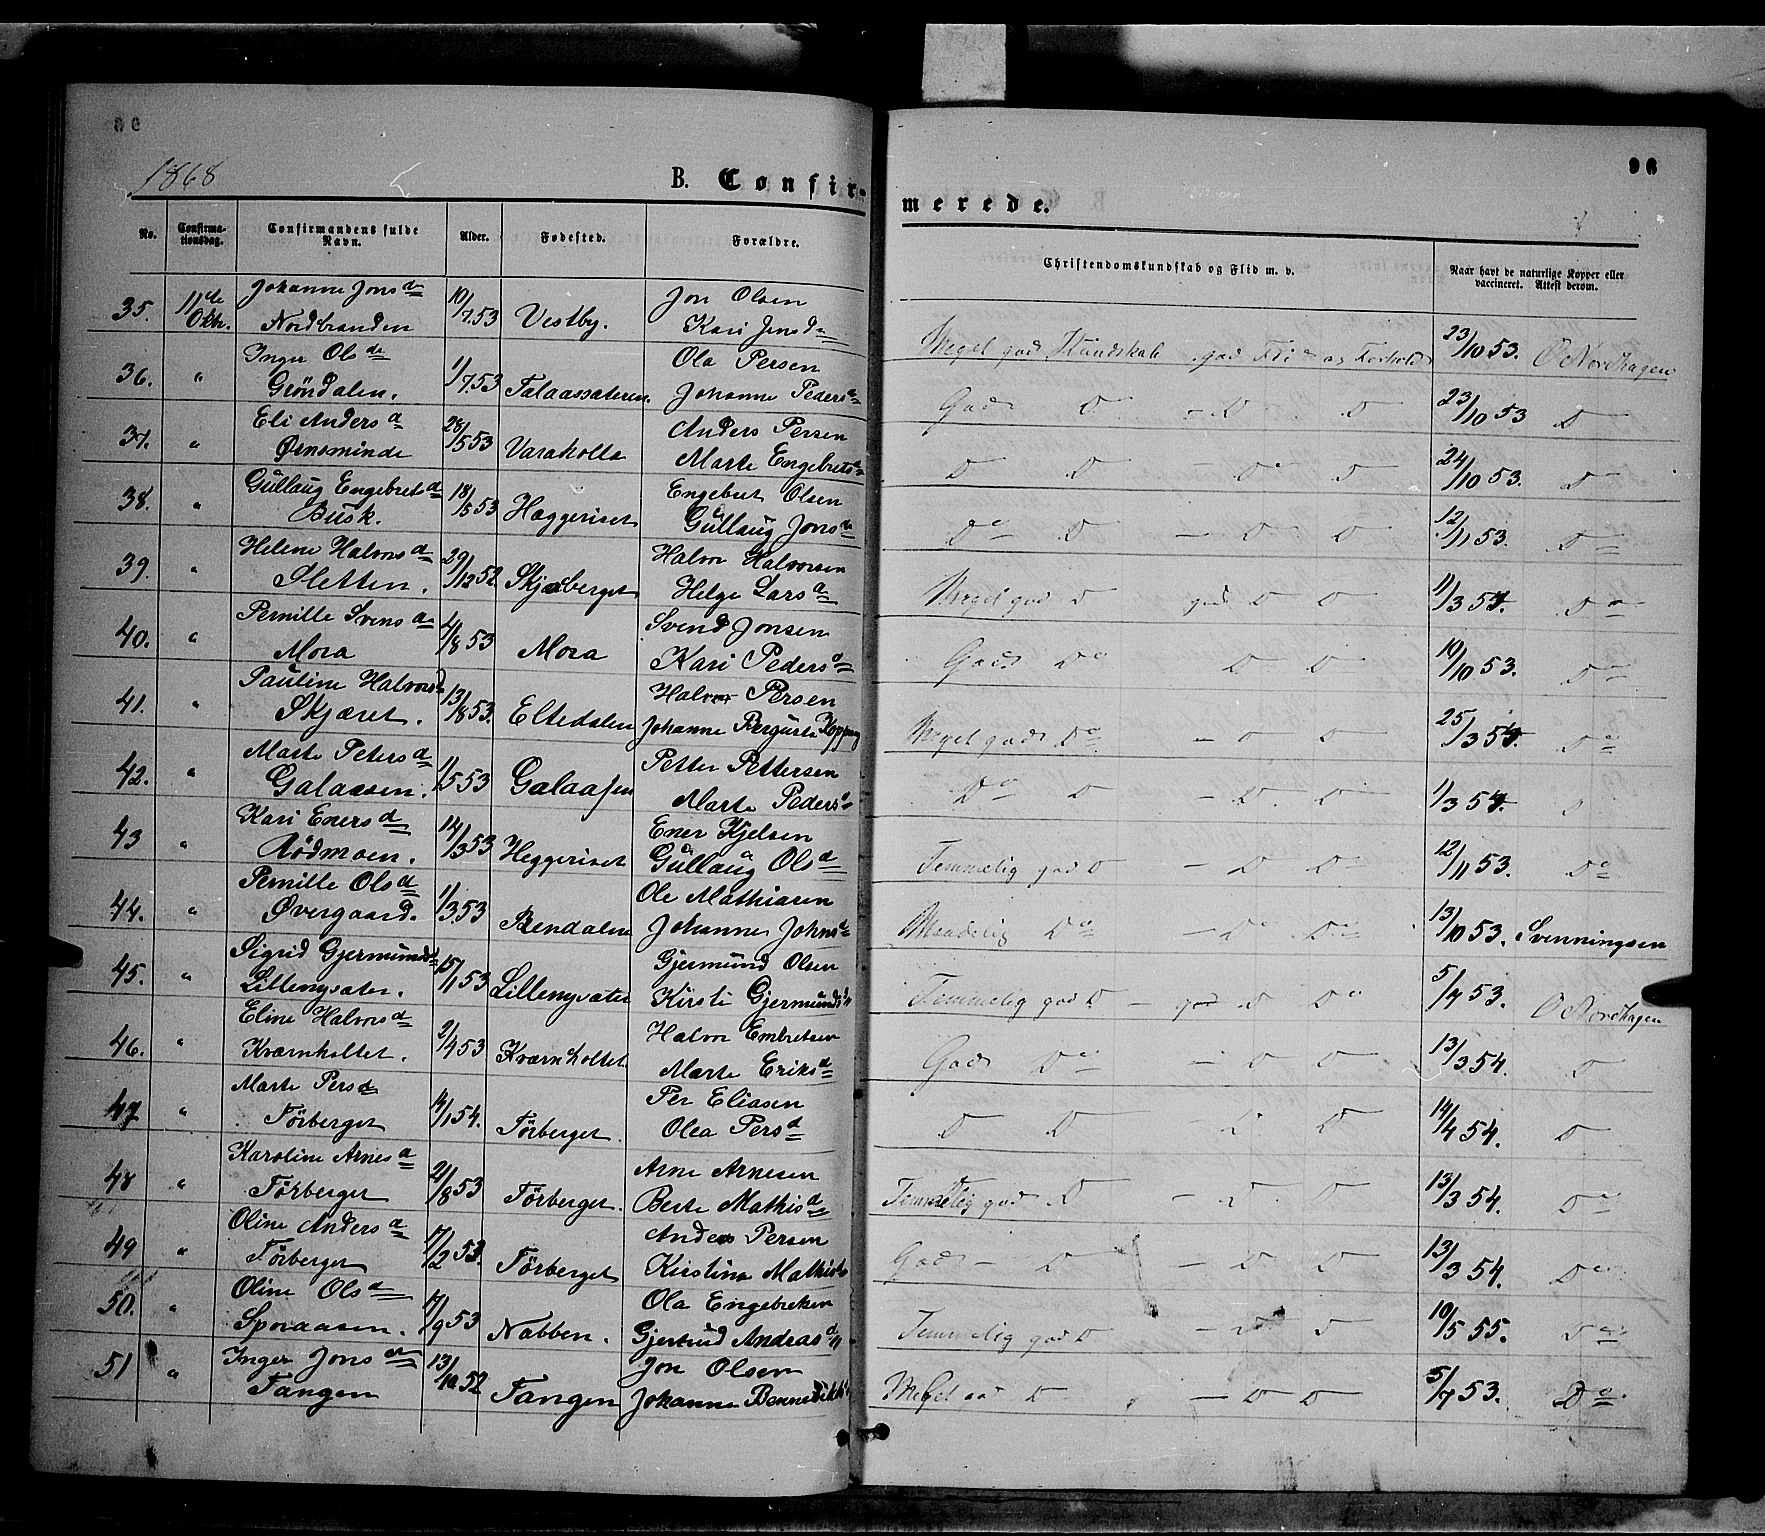 96
1868
B. Confir-
merede.
No. Confirma-tionsdag. Confirmandens fulde Navn. Alder. Fødested. Forældre. Christendomskundskab og Flid m. v. Naar havt de naturlige Kopper eller vaccineret. Attest derom.
35. 11te Oktbr. Johanne Jonsd Nordbranden 10/7 53 Vestby. Jon Olsen Kari Jensd Meget god Kundskab god Flid og Forhold 23/10 53. O Nordhagen
36. " Inger Olsd Gröndalen. 1/7 53 Falaassæteren. Ola Persen Johanne Pedersd God D - D D 23/10 53 D
37. " Eli Andersd Ørnsminde 28/5 53 Varaholla Anders Persen Marte Engebretsd D D - D D 24/10 53. D
38. " Gullaug Engebretsd Busk. 18/5 53 Hæggeriset Engebret Olsen Gullaug Jonsd Do D - D D 12/11 53. D
39. " Helene Halvorsd Sletten. 29/12 52 Skjærberget Halvor Halvorsen Helge Larsd Meget god D god D D 11/3 54. Do
40. " Pernille Svensd Mora 4/8 53 Mora Svend Jonsen Kari Pedersd God Do D D 10/10 53. Do
41. " Pauline Halvorsd Skjæret. 13/8 53. Eltedalen Halvor Persen Johanne Bergurta Koppang Meget god Do - D D 25/3 54. Do
42. " Marte Petersd Galaasen. 1/5 53 Galaasen Petter Pettersen Marte Pedersd Do D - D. D 1/3 54. D
43 " Kari Enersd Rödmoen. 14/3 53 Heggeriset Ener Kjelsen Gullaug Olsd Temmelig god D - D D 12/11 53. Do
44. " Pernille Olsd Øvergaard. 1/3 53 Rendalen Ole Mathiasen Johanne Johnsd Maadelig Do - Do Do 13/10 53. Svenningsen
45. " Sigrid Gjermundsd Lillenysæter. 15/1 53 Lillenysæter Gjermund Olsen Kirsti Gjermundsd Temmelig god D - god D Do 5/7 53. O Nordhagen
46. " Eline Halvorsd Kværnholtet. 2/4 53 Kværnholtet. Halvor Embretsen Marte Eriksd God Do - D D 13/3 54. D
47. " Marte Persd Törberget 14/1 54. Törberget. Per Eliasen Olea Persd D D - D D 14/4 54. D
48 " Karoline Arnesd Törberget 21/8 53 Törberget. Arne Arnesen Berte Mathisd Temmelig god D - D. D 13/3 54. Do
49 " Oline Andersd Törberget 17/2 53. Törberget Anders Persen Kirstine Mathisd God - D - D D 13/3 54. Do
50. " Oline Olsd Sporaasen. 17/9 53 Nabben. Ola Engebretsen Gjertrud Andrasd Temmelig god D - D D 10/5 55. Do
51 " Inger Jonsd Tangen 13/10 52 Tangen Jon Olsen Johanne Bennediktsd Meget god D - D D 5/7 53. Do.